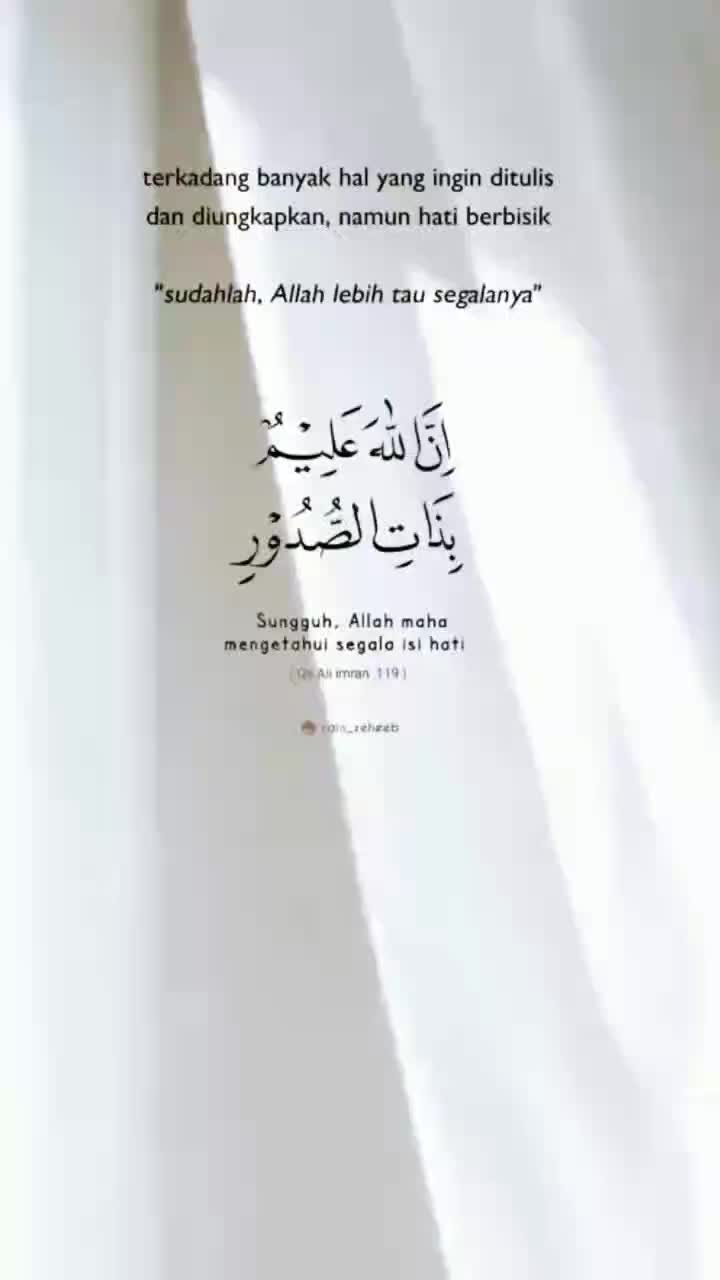 terkadang banyak hal yang ingin ditulis
dan diungkapkan, namun hati berbisik
"sudahlah, Allah lebih tau segalanya"
اِنَّ اللّٰهَ عَلِيْمٌ
بِذَاتِ الصُّدُوْرِ
Sungguh, Allah maha
mengetahui segala isi hati
( Qs Ali imran :119 )